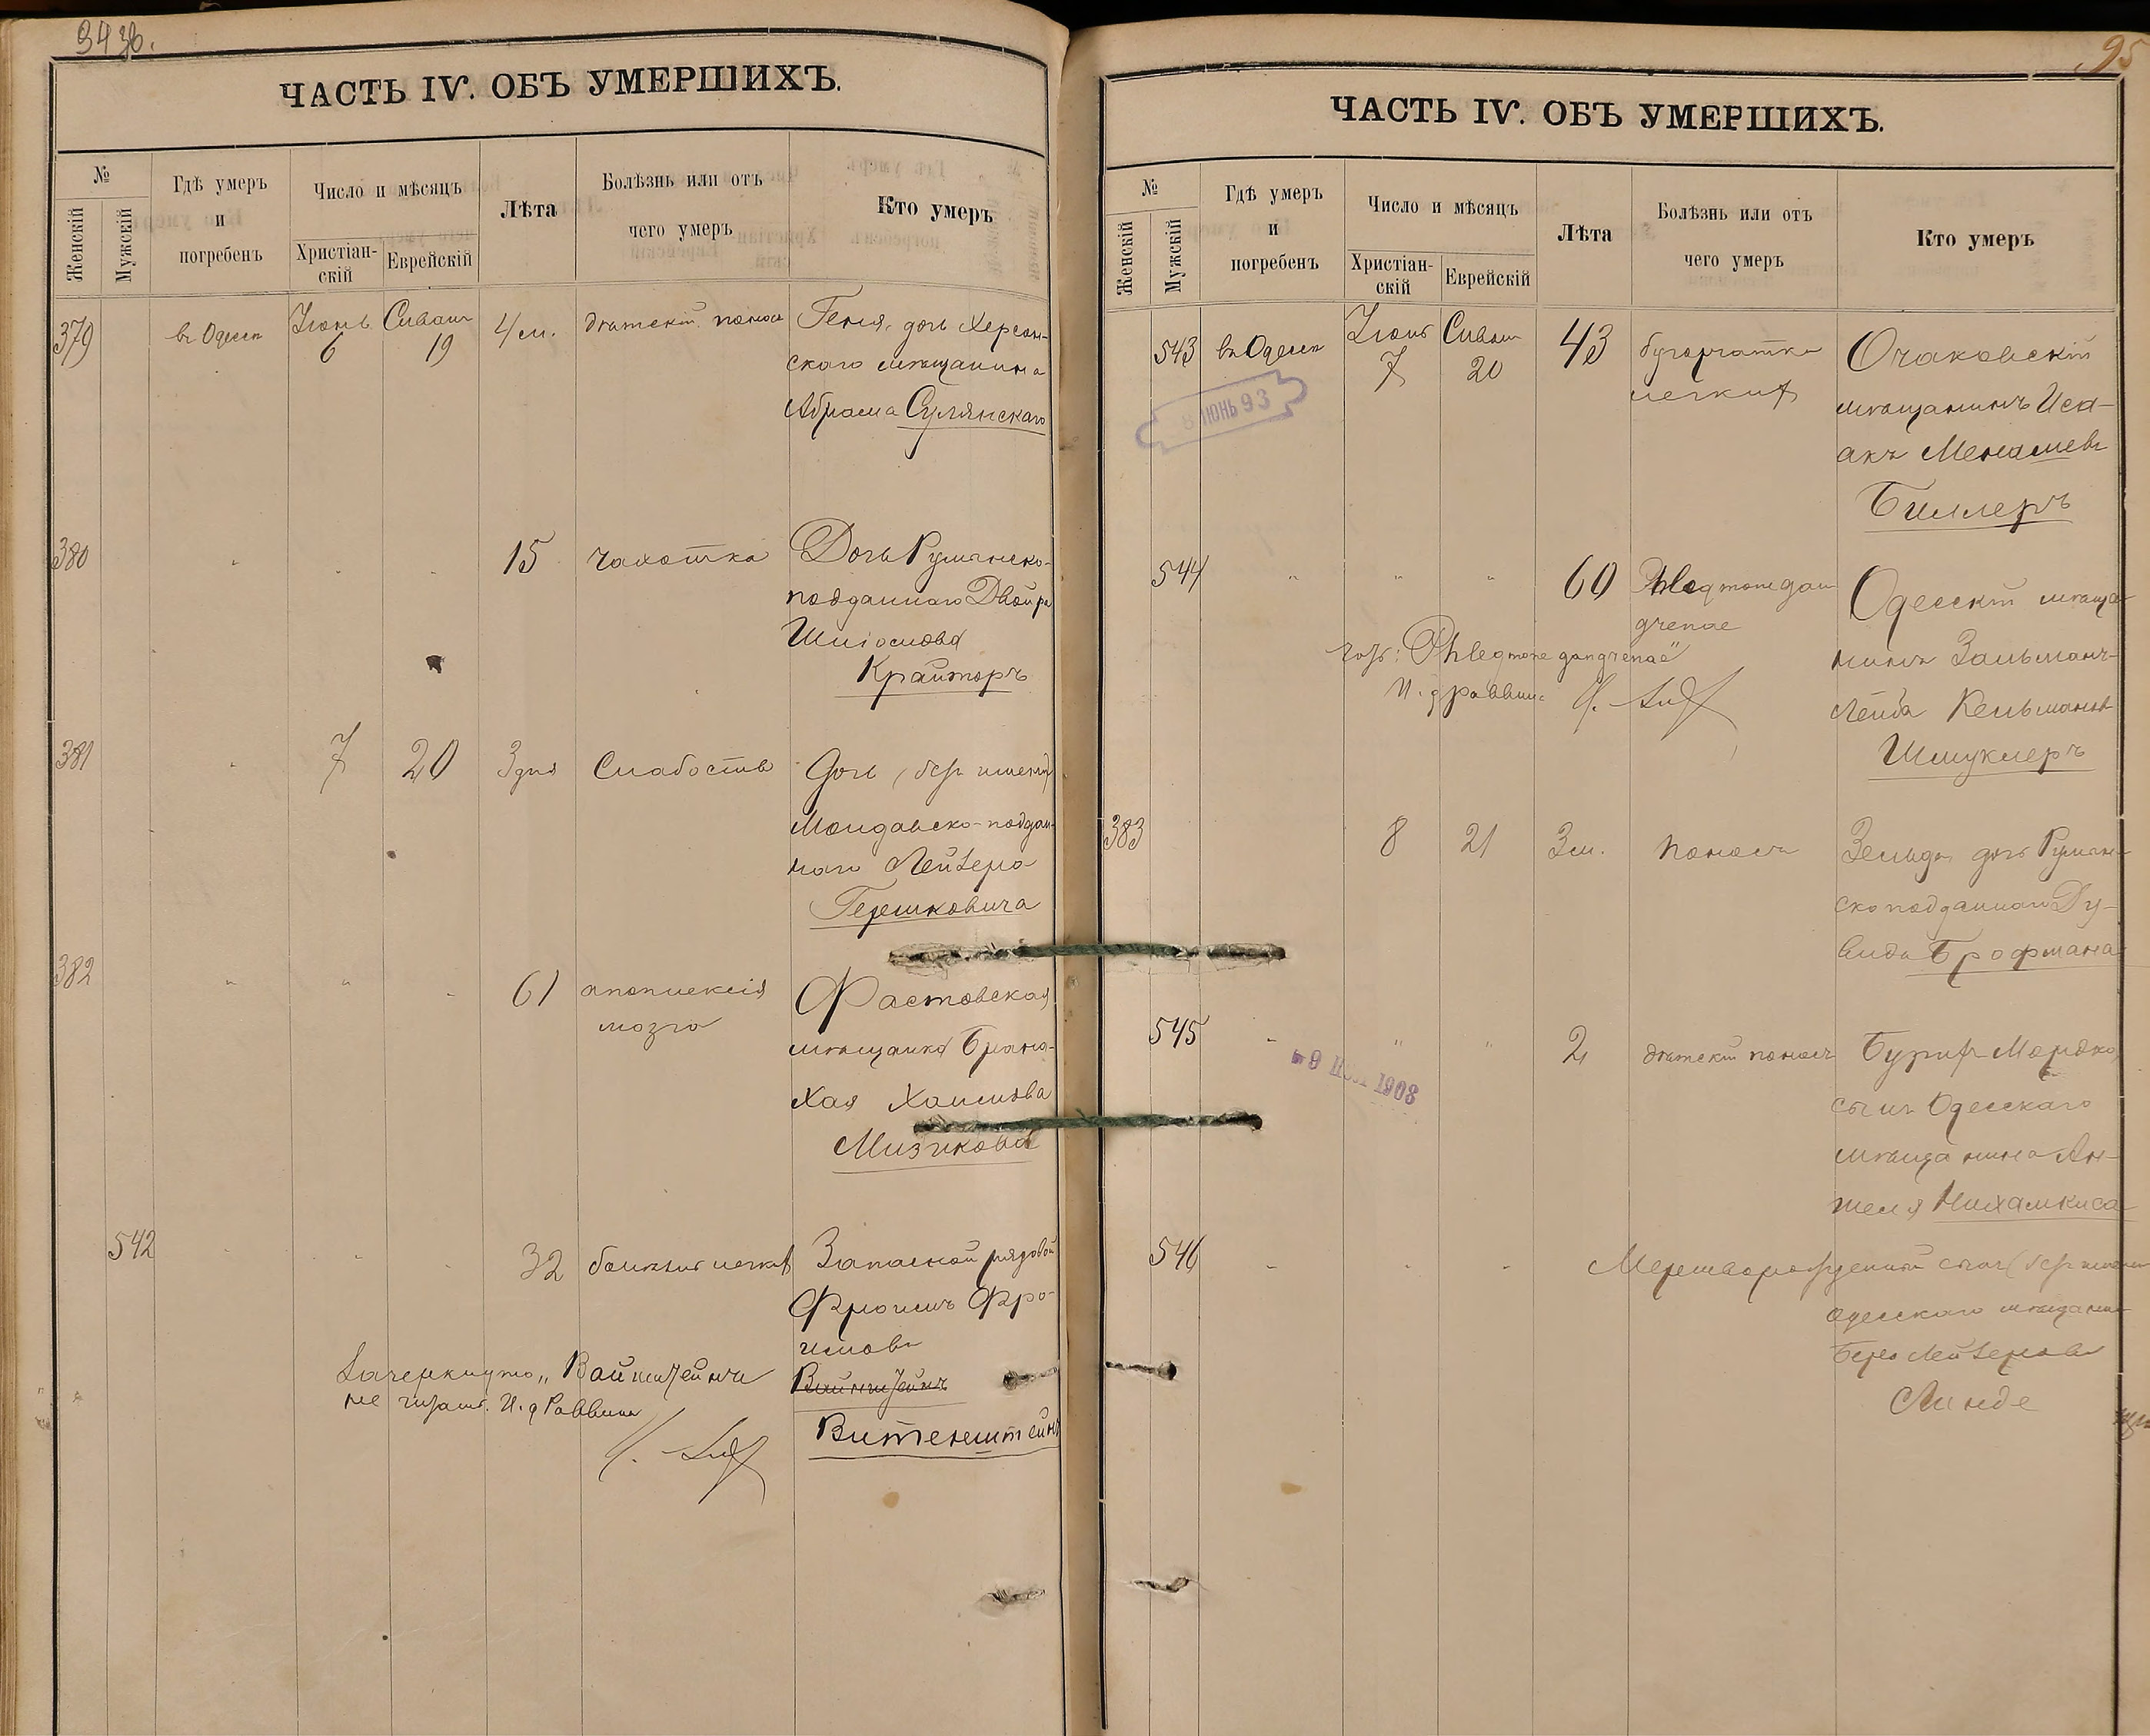 ЧАСТЬ IV. ОБЪ УМЕРШИХЪ.
№
Женскій
Мужскій
Гдѣ умеръ
и
погребенъ
Число и мѣсяцъ
Христіан-
скій
Еврейскій
Лѣта
Болѣзнь или отъ
чего умеръ
Кто умеръ
379
въ Одессѣ
Іюнь
6
Сиванъ
19
4 м.
дѣтскій поносъ
Геня, дочь Херсон-
скаго мѣщанина
Абрама Сулянскаго
380
15
чахотка
Дочь Румынско-
подданнаго Двойра
Крайторъ
381
7
20
3 дня
Слабость
дочь (безъ имени)
Молдавско-поддан-
наго Лейзера
Гершковича
382
61
апоплексія
мозга
Фастовская
мѣщанка Брана-
Хая Хаимова
Мизикова
542
32
болѣзнь легкихъ
Запасной рядовой
Фроимъ Фро-
имовъ
Вайнштейнъ
Витенштейнъ
Зачеркнуто „Вайнштейнъ
не читать. И. д. Раввина
95
ЧАСТЬ IV. ОБЪ УМЕРШИХЪ.
№
Женскій
Мужскій
Гдѣ умеръ
и
погребенъ
Число и мѣсяцъ
Христіан-
скій
Еврейскій
Лѣта
Болѣзнь или отъ
чего умеръ
Кто умеръ
543
въ Одессѣ
Іюнь
7
Сиванъ
20
43
бугорчатка
легкихъ
Очаковскій
мѣщанинъ Иса-
акъ Менашевъ
Биллеръ
8 ІЮНЬ 93
544
60
Phlegmone gan
grenae
Одесскій мѣща-
нинъ Зальманъ-
Лейба Кельмановъ
Шмуклеръ
Phlegmone gangrenae"
И. д. раввина
383
8
21
3 м.
поносъ
Зельда, дочь Румын-
скоподданнаго Ду-
вида Брофмана
545
2
дѣтскій поносъ
Бурихъ-Мордко,
сынъ Одесскаго
мѣщанина Ан-
шеля
1903
546
Мертворожденный сынъ (безъ имени
одесскаго мѣщанина
Бера Лейзерова
Линде